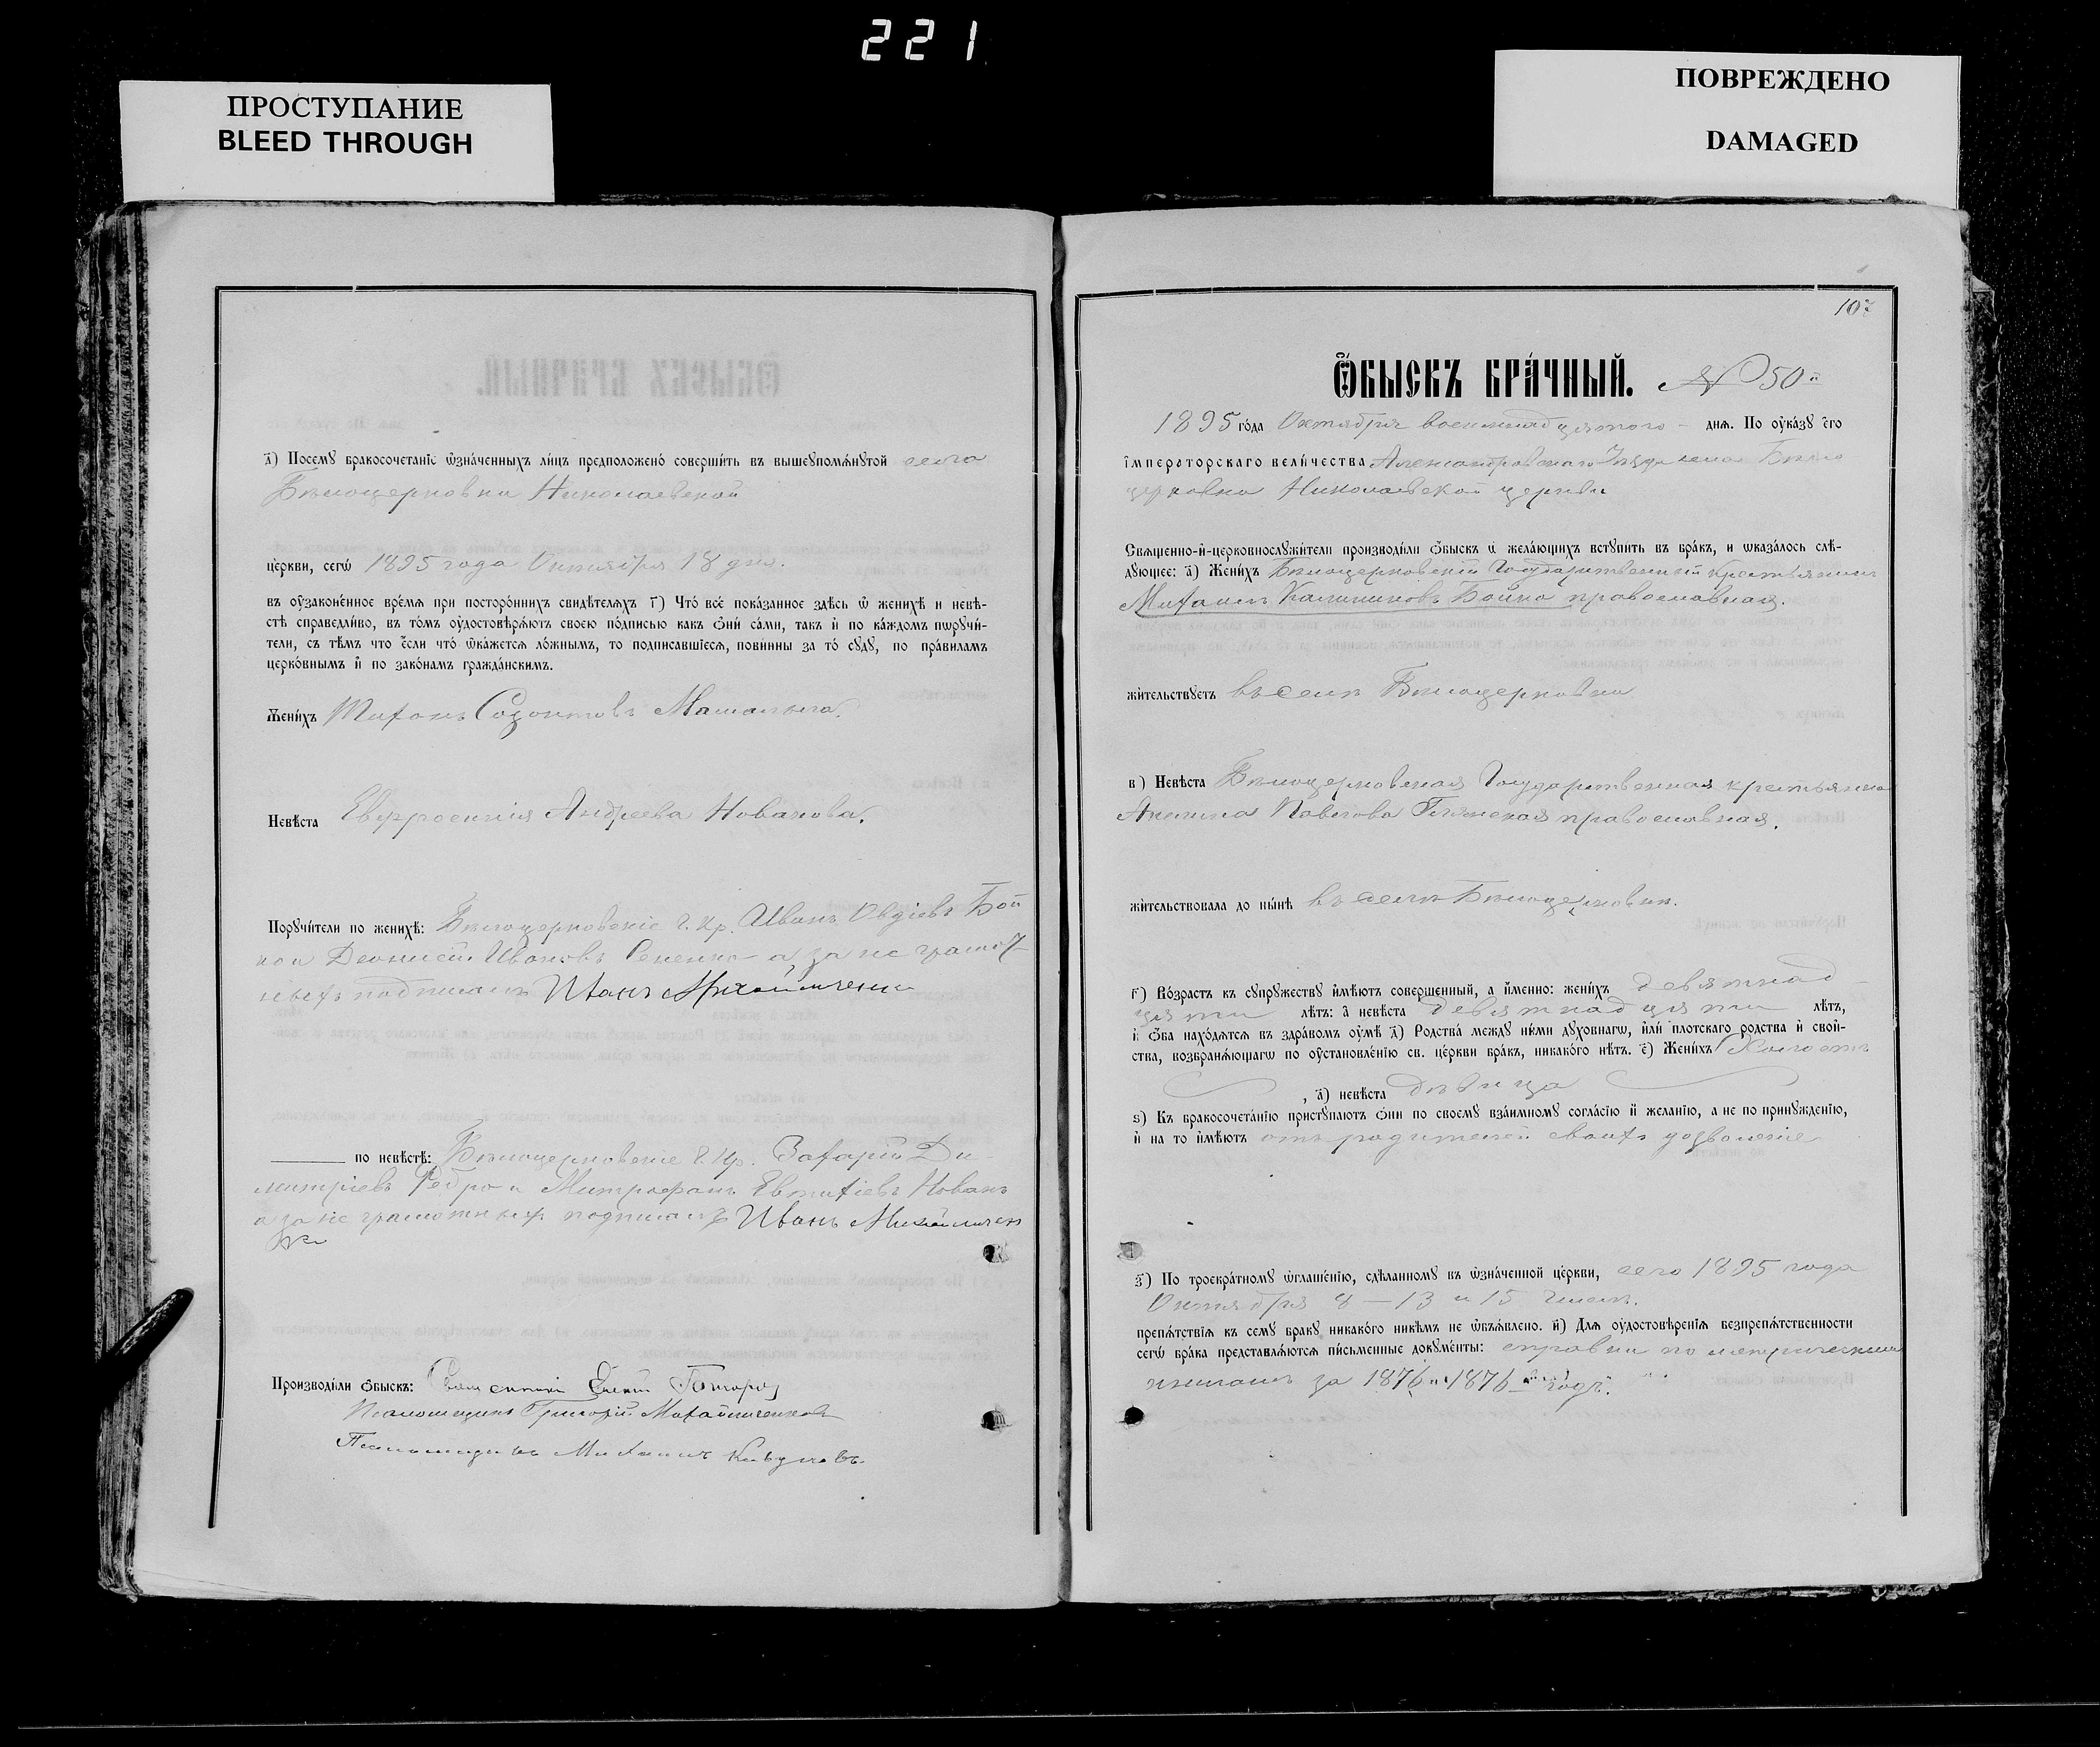 221
ПРОСТУПАНИЕ
BLEED THROUGH
ПОВРЕЖДЕНО
DAMAGED
а҃) Посемꙋ бракосочетанїе ѡзна́ченныхъ ли́цъ предположено́ соверши́ть въ вышеꙋпомѧ́нꙋтой села
Бѣлоцерковки Николаевской
це́ркви, сегѡ̀ 1895 года Октября 18 дня.
въ оу҆зако́ненное вре́мѧ при посторо́ннихъ свидѣ́телѧхъ г҃) Что̀ всѐ пока́занное здѣ́сь ѡ҆ женихѣ̀ и невѣ́-
стѣ справедли́во, въ то́мъ оу҆достовѣрѧ́ютъ свое́ю по́дписью какъ ѻ҆нѝ са́ми, такъ и҆ по ка́ждомъ порꙋчи́-
тели, съ тѣ́мъ что є҆́сли что̀ ѡ҆ка́жетсѧ ло́жнымъ, то подписа́вшїесѧ, пови́нны за то̀ сꙋдꙋ̀, по пра́виламъ
церко́внымъ и҆ по зако́намъ гражда́нскимъ.
Жени́хъ Тихонъ Созонтовъ Машлыка.
Невѣ́ста Евфросинія Андреева Новакова.
Порꙋчи́тели по женихѣ̀: Бѣлоцерковскіе Г. Кр. Иванъ Овдіевъ Бой
ко и Деонисій Ивановъ а за не грамот
ныхъ подписалъ Иванъ Михайличенко
по невѣ́стѣ: Бѣлоцерковскіе Г. Кр. Захарій Ди
митріевъ Федро и Митрофанъ Евтихіевъ Новакъ
а за не грамотныхъ подписалъ Иванъ Михайличен
ко
Производи́ли ѻ҆́быскъ: Священникъ
Псаломщикъ Григорій Михайличенковъ
Псаломщикъ Михаилъ
107
Ѻ҆́БЫСКЪ БРА́ЧНЫЙ. № 50й
1895 го́да Октября восемнадцятого днѧ. По оу҆ка́зꙋ є҆гѡ̀
і҆мператорскаго вели́чества Александровскаго Уѣзда села Бѣло
церковки Николаевской церкви
Свѧще́нно-и҆-церковнослꙋжи́тели производи́ли ѻ҆́быскъ ѡ҆ жела́ющихъ встꙋпи́ть въ бра́къ, и ѡказа́лось слѣ́-
дꙋющее: а҃) Жени́хъ Бѣлоцерковскій Государственный крестьянинъ
Михаилъ Калиниковъ Бойко православная.
жи́тельствꙋетъ въ селѣ Бѣлоцерковки
в҃) Невѣ́ста Бѣлоцерковская Государственная крестьянка
Акилина Павлова православная.
жи́тельствовала до ны́нѣ въ селѣ Бѣлоцерковки.
г҃) Во́зрастъ къ сꙋпрꙋжествꙋ и҆мѣ́ютъ соверше́нный, а и҆́менно: жени́хъ девятнад
цяти лѣ́тъ: а҆ невѣ́ста девятнадцяти лѣ́тъ,
и҆ ѻ҆́ба нахо́дѧтсѧ въ здра́вомъ оу҆мѣ̀ д҃) Родства̀ междꙋ ни́ми дꙋхо́внагѡ, и҆лѝ пло́тскаго родства̀ и҆ свой-
ства̀, возбранѧ́ющагѡ по оу҆становле́нїю св. це́ркви бра́къ, никако́го нѣ́тъ. є҃) Жени́хъ Холостъ
, а҃) невѣ́ста дѣвица
ѕ҃) Къ бракосочета́нїю пристꙋпа́ютъ ѻ҆нѝ по своемꙋ̀ взаи́мномꙋ согла́сїю и҆ жела́нїю, а не по принꙋжде́нїю,
и҆ на то̀ и҆мѣ́ютъ отъ родителей своихъ дозволеніе
з҃) По троекра́тномꙋ ѡ҆глаше́нїю, сдѣ́ланномꙋ въ ѡ҆зна́ченной це́ркви, сего 1895 года
Октября 8 — 13 и 15 чиселъ.
препѧ́тствїѧ къ семꙋ̀ бра́кꙋ никако́го никѣ́мъ не ѡ҆б̾ѧ́влено. и҃) Длѧ оу҆достовѣре́нїѧ безпрепѧ́тственности
сегѡ̀ бра́ка представлѧ́ютсѧ пи́сьменные докꙋме́нты: справки по метрическимъ
книгамъ за 1876 и 1876 годъ.